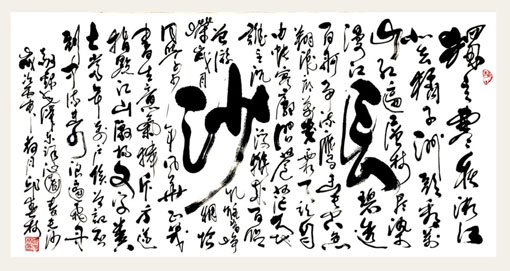 独立寒秋湘江
北去橘子洲头看万
山红遍层林尽染
漫江碧透
百舸争流鹰击长空鱼
翔浅底万类霜天竞自由
长沙
怅寥廓问苍茫大地
谁主沉浮携来百侣
曾游忆往昔峥
嵘岁月稠恰
同学少年风华正茂
书生意气挥斥方遒
指点江山激扬文字粪
土当年万户侯曾记否
到中流击水浪遏飞舟
毛泽东词沁园春长沙